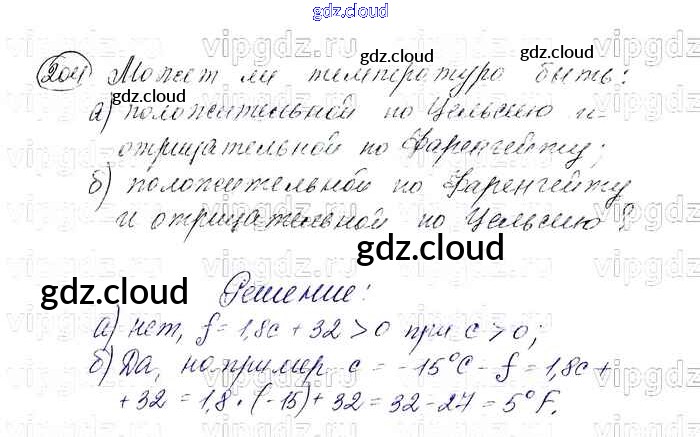 gdz.cloud
204 Может ли температура быть:
а) положительной по Цельсию и
отрицательной по Фаренгейту;
б) положительной по Фаренгейту
и отрицательной по Цельсию?
Решение:
а) нет, f = 1,8c + 32 > 0 при c > 0;
б) Да, например c = -15°C - f = 1,8c +
+ 32 = 1,8 · (-15) + 32 = 32 - 27 = 5°F.
gdz.cloud
gdz.cloud
gdz.cloud
gdz.cloud
gdz.cloud
gdz.cloud
gdz.cloud
vipgdz
vipgdz
vipgdz